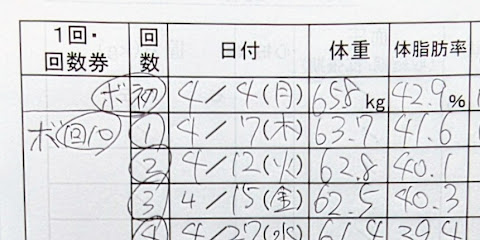 1回・回数券 回数 日付 体重 体脂肪率
ボ初 4/4(月) 65.8kg 42.9%
ボ回10 1 4/7(木) 63.7 41.6
2 4/12(火) 62.8 40.1
3 4/15(金) 62.5 40.3
4 4/27(水) 61.4 39.4